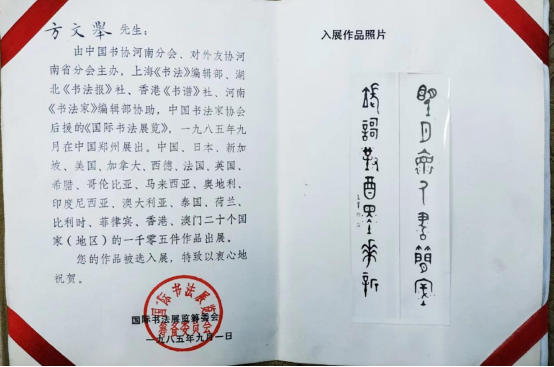 方文舉 先生：
由中国书协河南分会、对外友协河
南省分会主办，上海《书法》编辑部、湖
北《书法报》社、香港《书谱》社、河南
《书法家》编辑部协助，中国书法家协会
后援的《国际书法展览》，一九八五年九
月在中国郑州展出。中国、日本、新加
坡、美国、加拿大、西德、法国、英国、
希腊、哥伦比亚、马来西亚、奥地利、
印度尼西亚、澳大利亚、泰国、荷兰、
比利时、菲律宾、香港、澳门二十个国
家（地区）的一千零五件作品出展。
您的作品被选入展，特致以衷心地
祝贺。
国际书法展览筹委会
一九八五年九月一日
国际书法展览
筹备委员会
入展作品照片